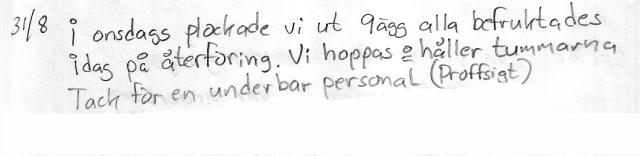 31/8 i onsdags plockade vi ut 9ägg alla befruktades
idag på återföring. Vi hoppas & håller tummarna
Tack för en underbar personal (Proffsigt)